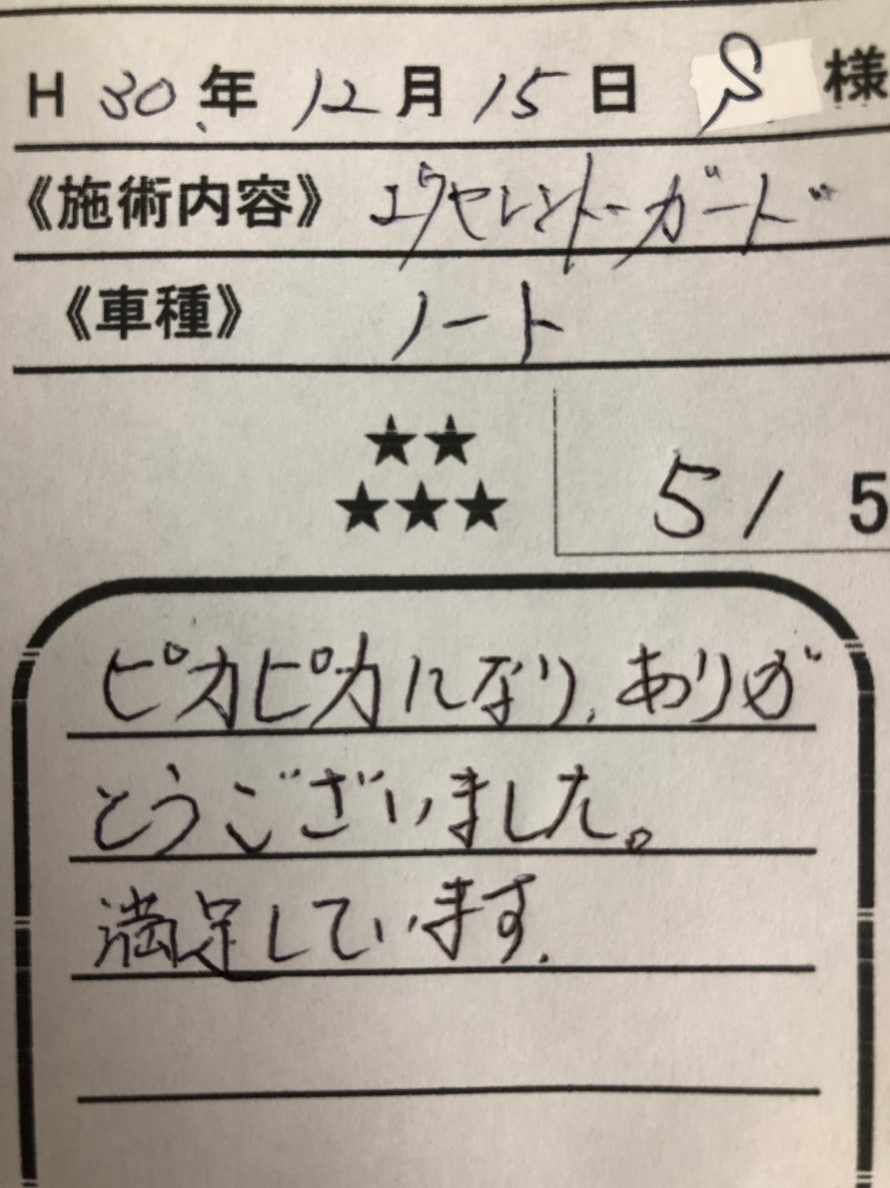 H 30年 12月 15日 S 様
《施術内容》 エクセレントガード
《車種》 ノート
★★
★★★
5/5
ピカピカになり、ありが
とうございました。
満足しています.